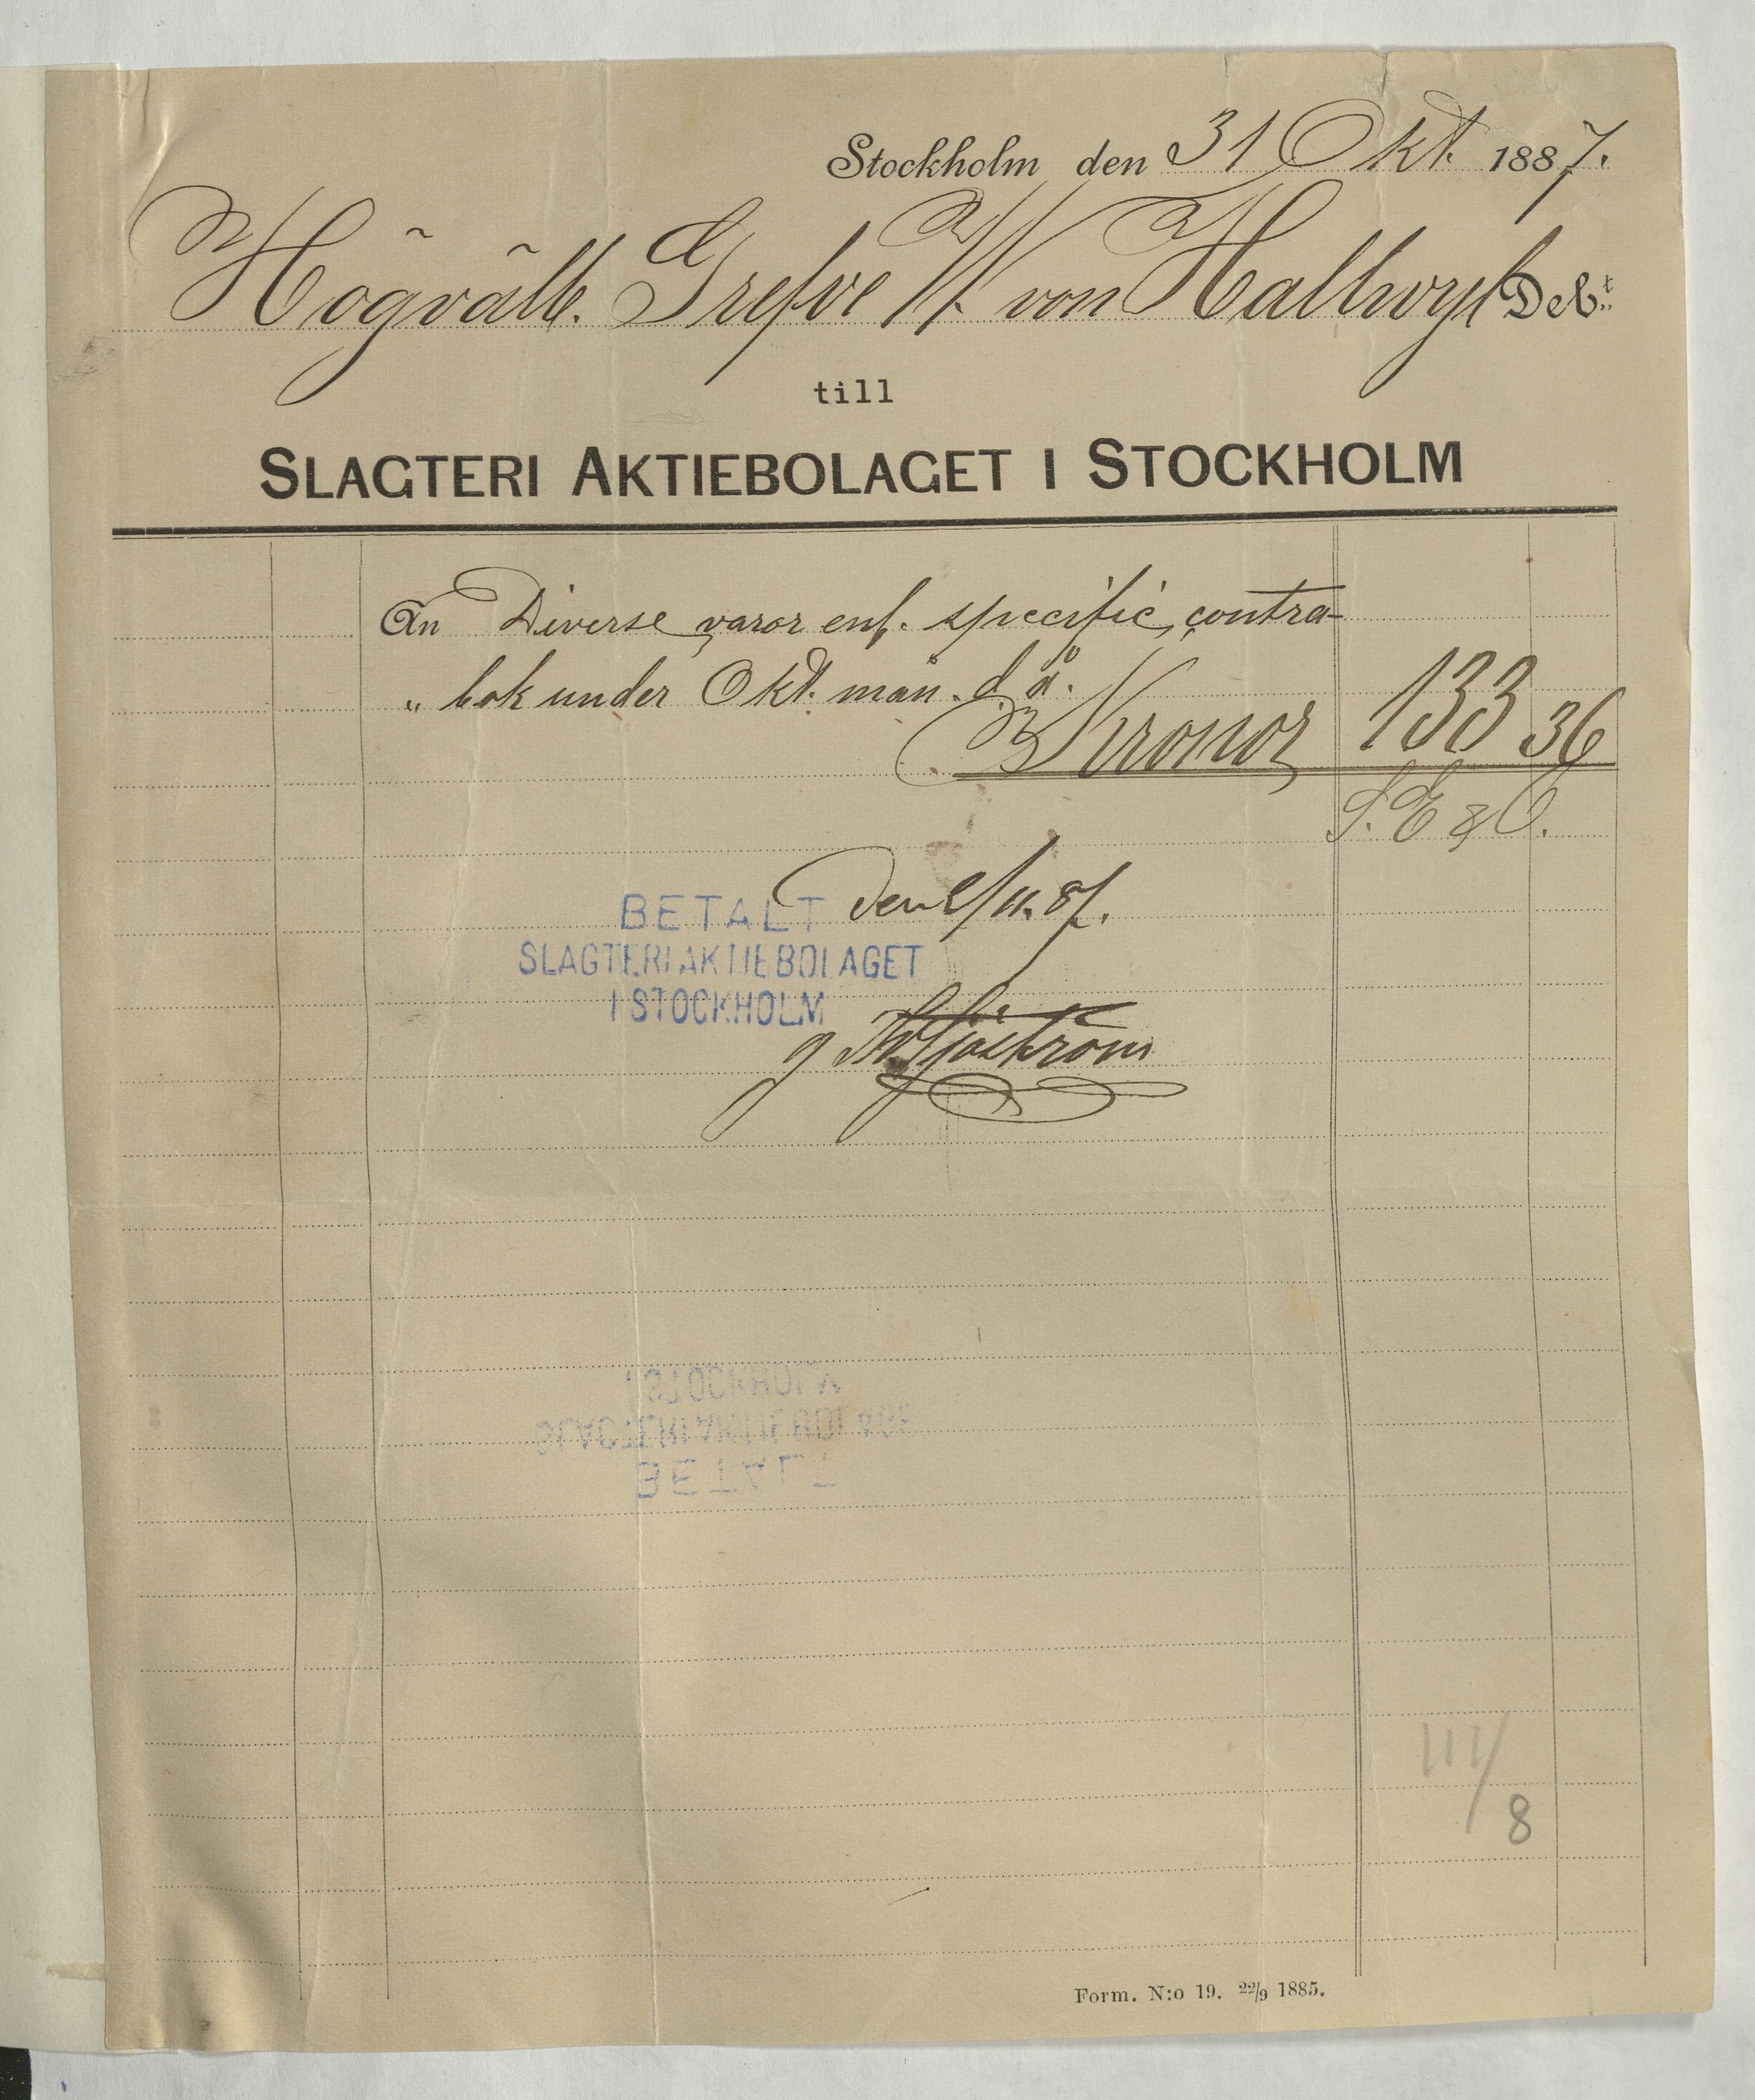 Stockholm den 31 Okt. 1887.
Högvälb. Grefve W. von Hallwyl Deb:t
till
SLAGTERI AKTIEBOLAGET I STOCKHOLM
An Diverse varor enl. specific, contra-
„ bok under Okt. mån. d. å.
Kronor 133 36
S. E & O.
BETALT den 2/11. 87.
SLAGTERIAKTIEBOLAGET
I STOCKHOLM
Sjöström
I STOCKHOLM
SLAGTERIAKTIEBOLAGET
BETALT
III/8
Form. N:o 19. 22/9 1885.